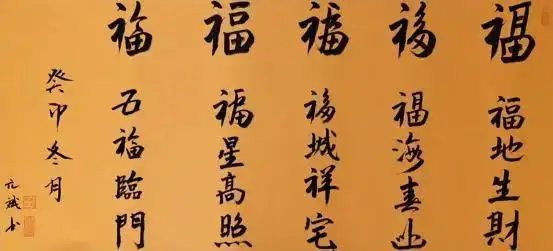 福
福地生財
福
福海
福
福城祥宅
福
福星高照
福
五福臨門
癸卯冬月
斌书